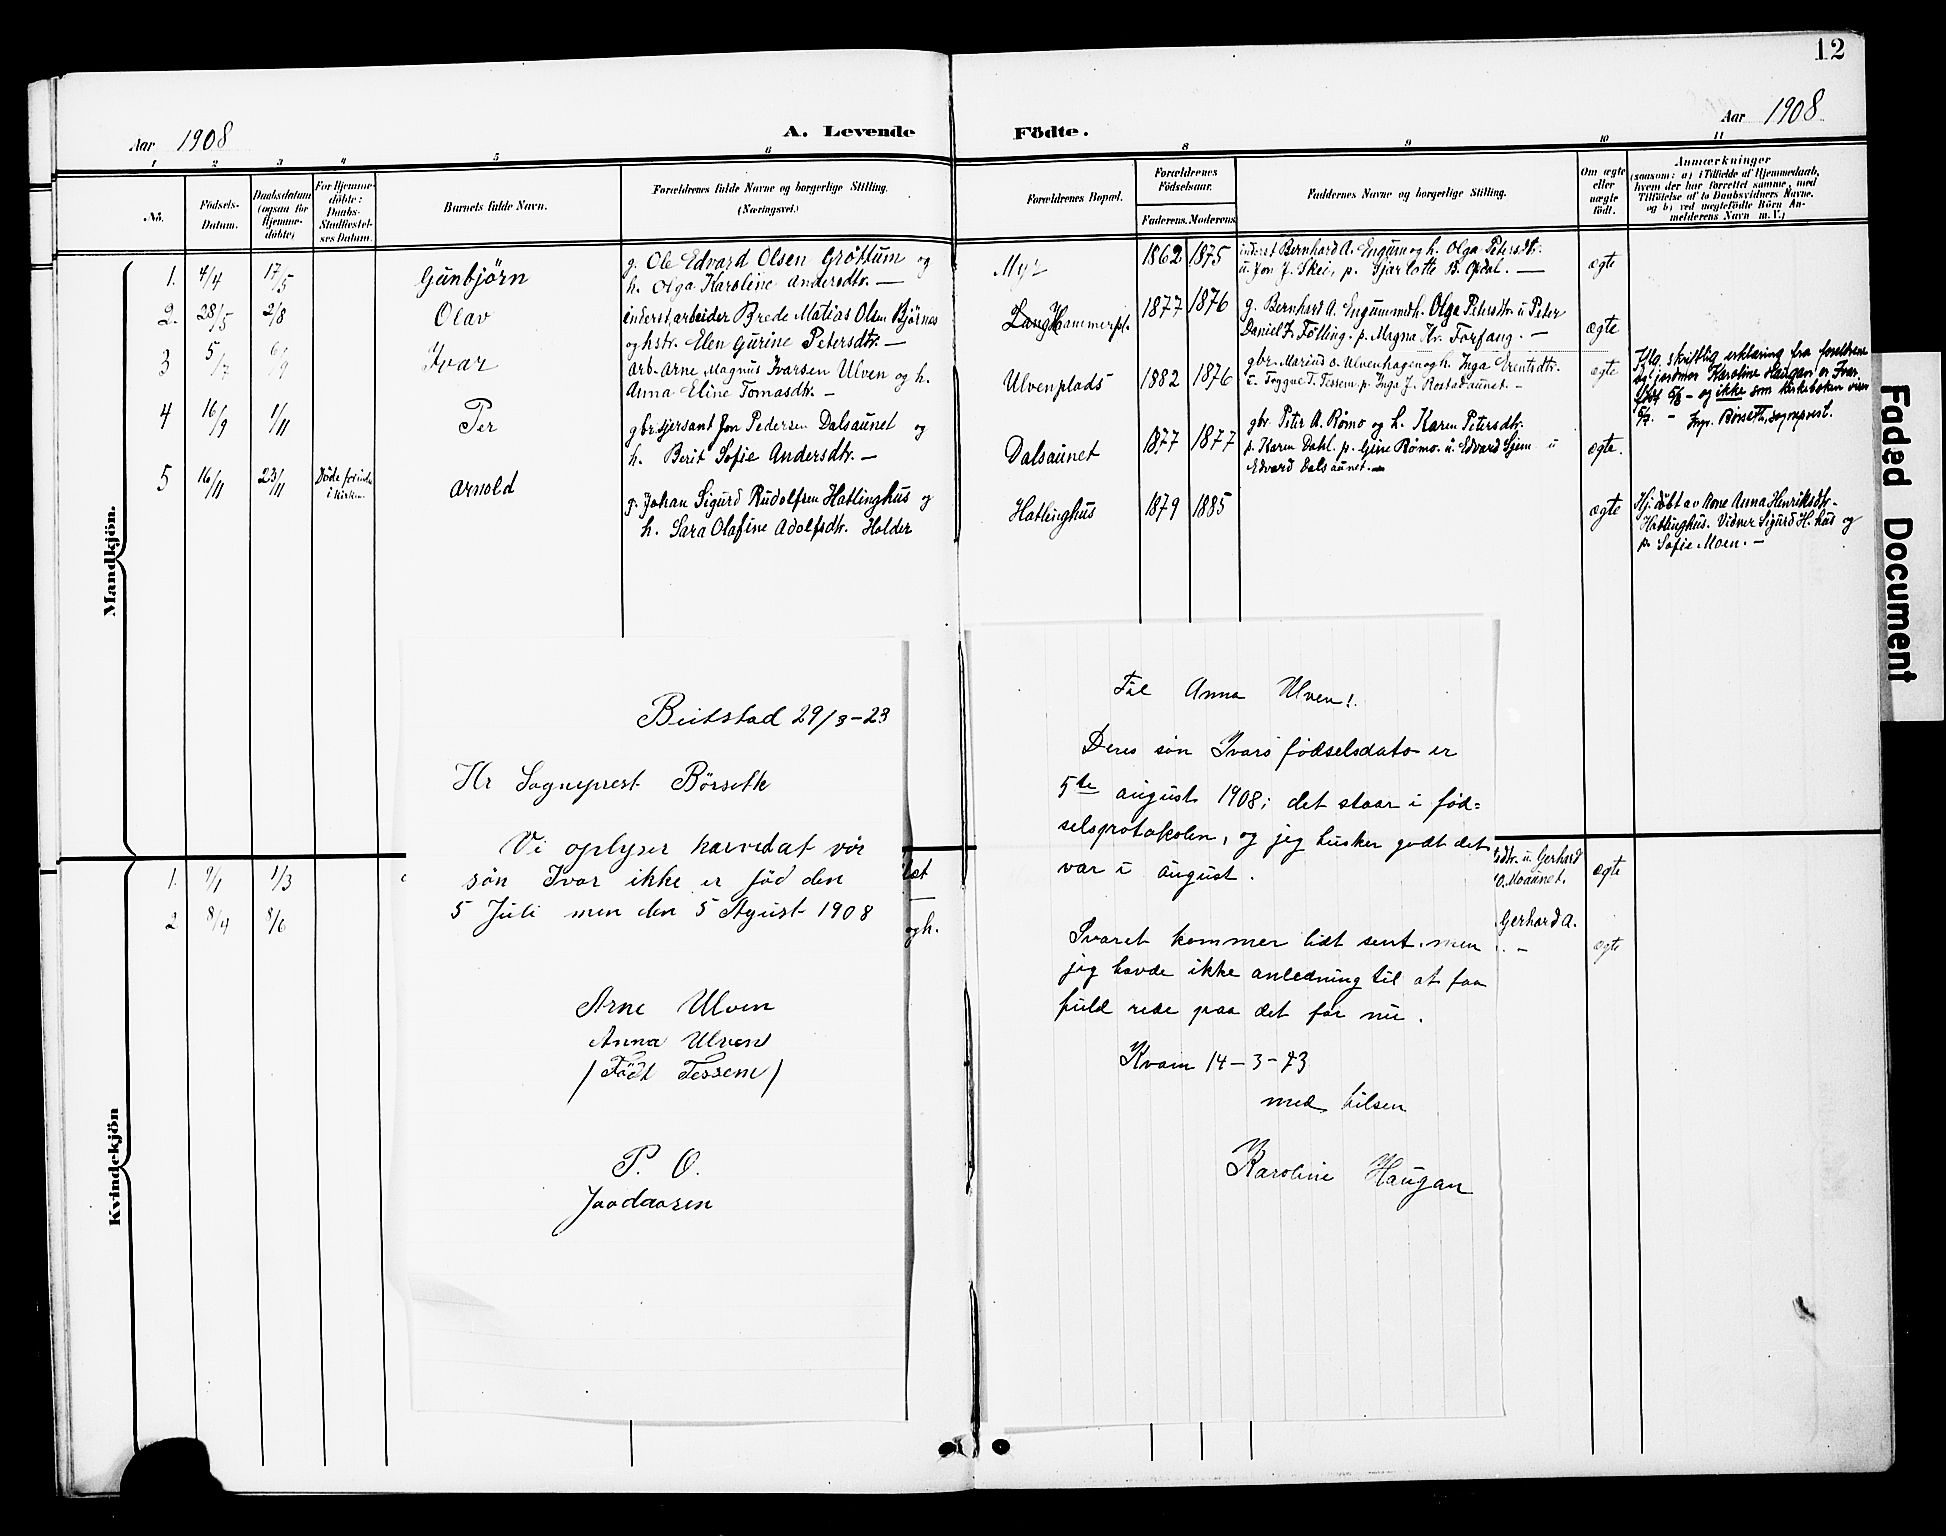 12
Aar 1908
A. Levende
Födte.
Aar 1908
1 2 3 4 5 6 8 9 10 11
No.
Födsels-
Datum.
Daabsdatum
(ogsaa for
Hjemme-
döbte)
For Hjemme-
döbte:
Daabs-
Stadfæstel-
ses Datum.
Barnets fulde Navn.
Forældrenes fulde Navne og borgerlige Stilling.
(Næringsvei.)
Forældrenes Bopæl.
Forældrenes
Födselsaar.
Faderens. Moderens.
Faddernes Navne og borgerlige Stilling.
Om ægte
eller
uægte
födt.
Anmærkninger
(saasom: a) i Tilfælde af Hjemmedaab,
hvem der har forrettet samme, med
Tilföielse af to Daabsvidners Navne.
og b) ved uægtefödte Börn An-
melderens Navn m. V.)
Mandkjön.
1. 4/4 17/5 Gunbjörn
g. Ole Edvard Olsen Gröttum og
h. Olga Karoline Andersdtr. —
Myr 1862 1875
inderst Bernhard A. Engum og h. Olga Petersdtr.
u. Jon J. Skei, p. Sjarlotte B. Opdal. —
ægte
2. 28/5 2/8 Olav
inderst, arbeider Brede Matias Olsen Björnes
og hstr. Elen Gurine Petersdtr. —
Langhammerpl. 1877 1876
g. Bernhard A. Engum med h. Olga Petersdtr. u Peter
Daniel J. Fölling. p. Magna Kr. Forfang. —
ægte
3 5/7 6/9 Ivar
arb. Arne Magnus Ivarsen Ulven og h.
Anna Eline Tomasdtr. —
Ulvenplads 1882 1876
gbr. Marius O. Ulvenhagen og h. Inga Erentsdtr.
u. Tryggve T. Tessem p. Inga J. Rostadaunet. —
ægte
Iflg. skriftlig erklæring fra foreldrene
og jordmor Karoline Haugan er Ivar
født 5/8 — og ikke som kirkeboken viser
5/7. — Ingv. Børseth, sogneprest.
4 16/9 1/11 Per
gbr. sjersant Jon Pedersen Dalsaunet og
h. Berit Sofie Andersdtr. —
Dalsaunet 1877 1877
gbr. Peter A. Rømo og h. Karen Petersdtr.
p. Karen Dahl. p. Gine Rømo. u. Edvard Gjem u
Edvard Dalsaunet. —
ægte.
5 16/11 23/11
i kirken.
Arnold
g. Johan Sigurd Rudolfsen Hatlinghus og
h. Sara Olafine Adolfsdtr. Holder
Hatlinghus 1879 1885
ægte
Hj. döbt av Kone Anna Henriksdtr.
Hatlinghus. Vidner Sigurd H. hus og
p. Sofie Moen. —
Kvindekjön
1. 9/1 1/3
dtr. u. Gerhard
O. Moaunet.
ægte
2 8/4 8/6
og h.
Gerhard A.
—
ægte
Beitstad 29/3-23
Hr Sogneprest Börseth
Vi oplyser herved at vör
sön Ivar ikke er föd den
5 Juli men den 5 Agust 1908
Arne Ulven
Anna Ulven
/ Född Tessem /
P. O.
Til Anna Ulven!
Deres søn Ivars fødselsdato er
5te august 1908; det staar i fød=
selsprotokolen, og jeg husker godt det
var i august.
Svaret kommer lidt sent. men
jeg havde ikke anledning til at faa
fuld rede paa det før nu.
Kvam 14-3-23
med hilsen
Karoline Haugan
Faded Document